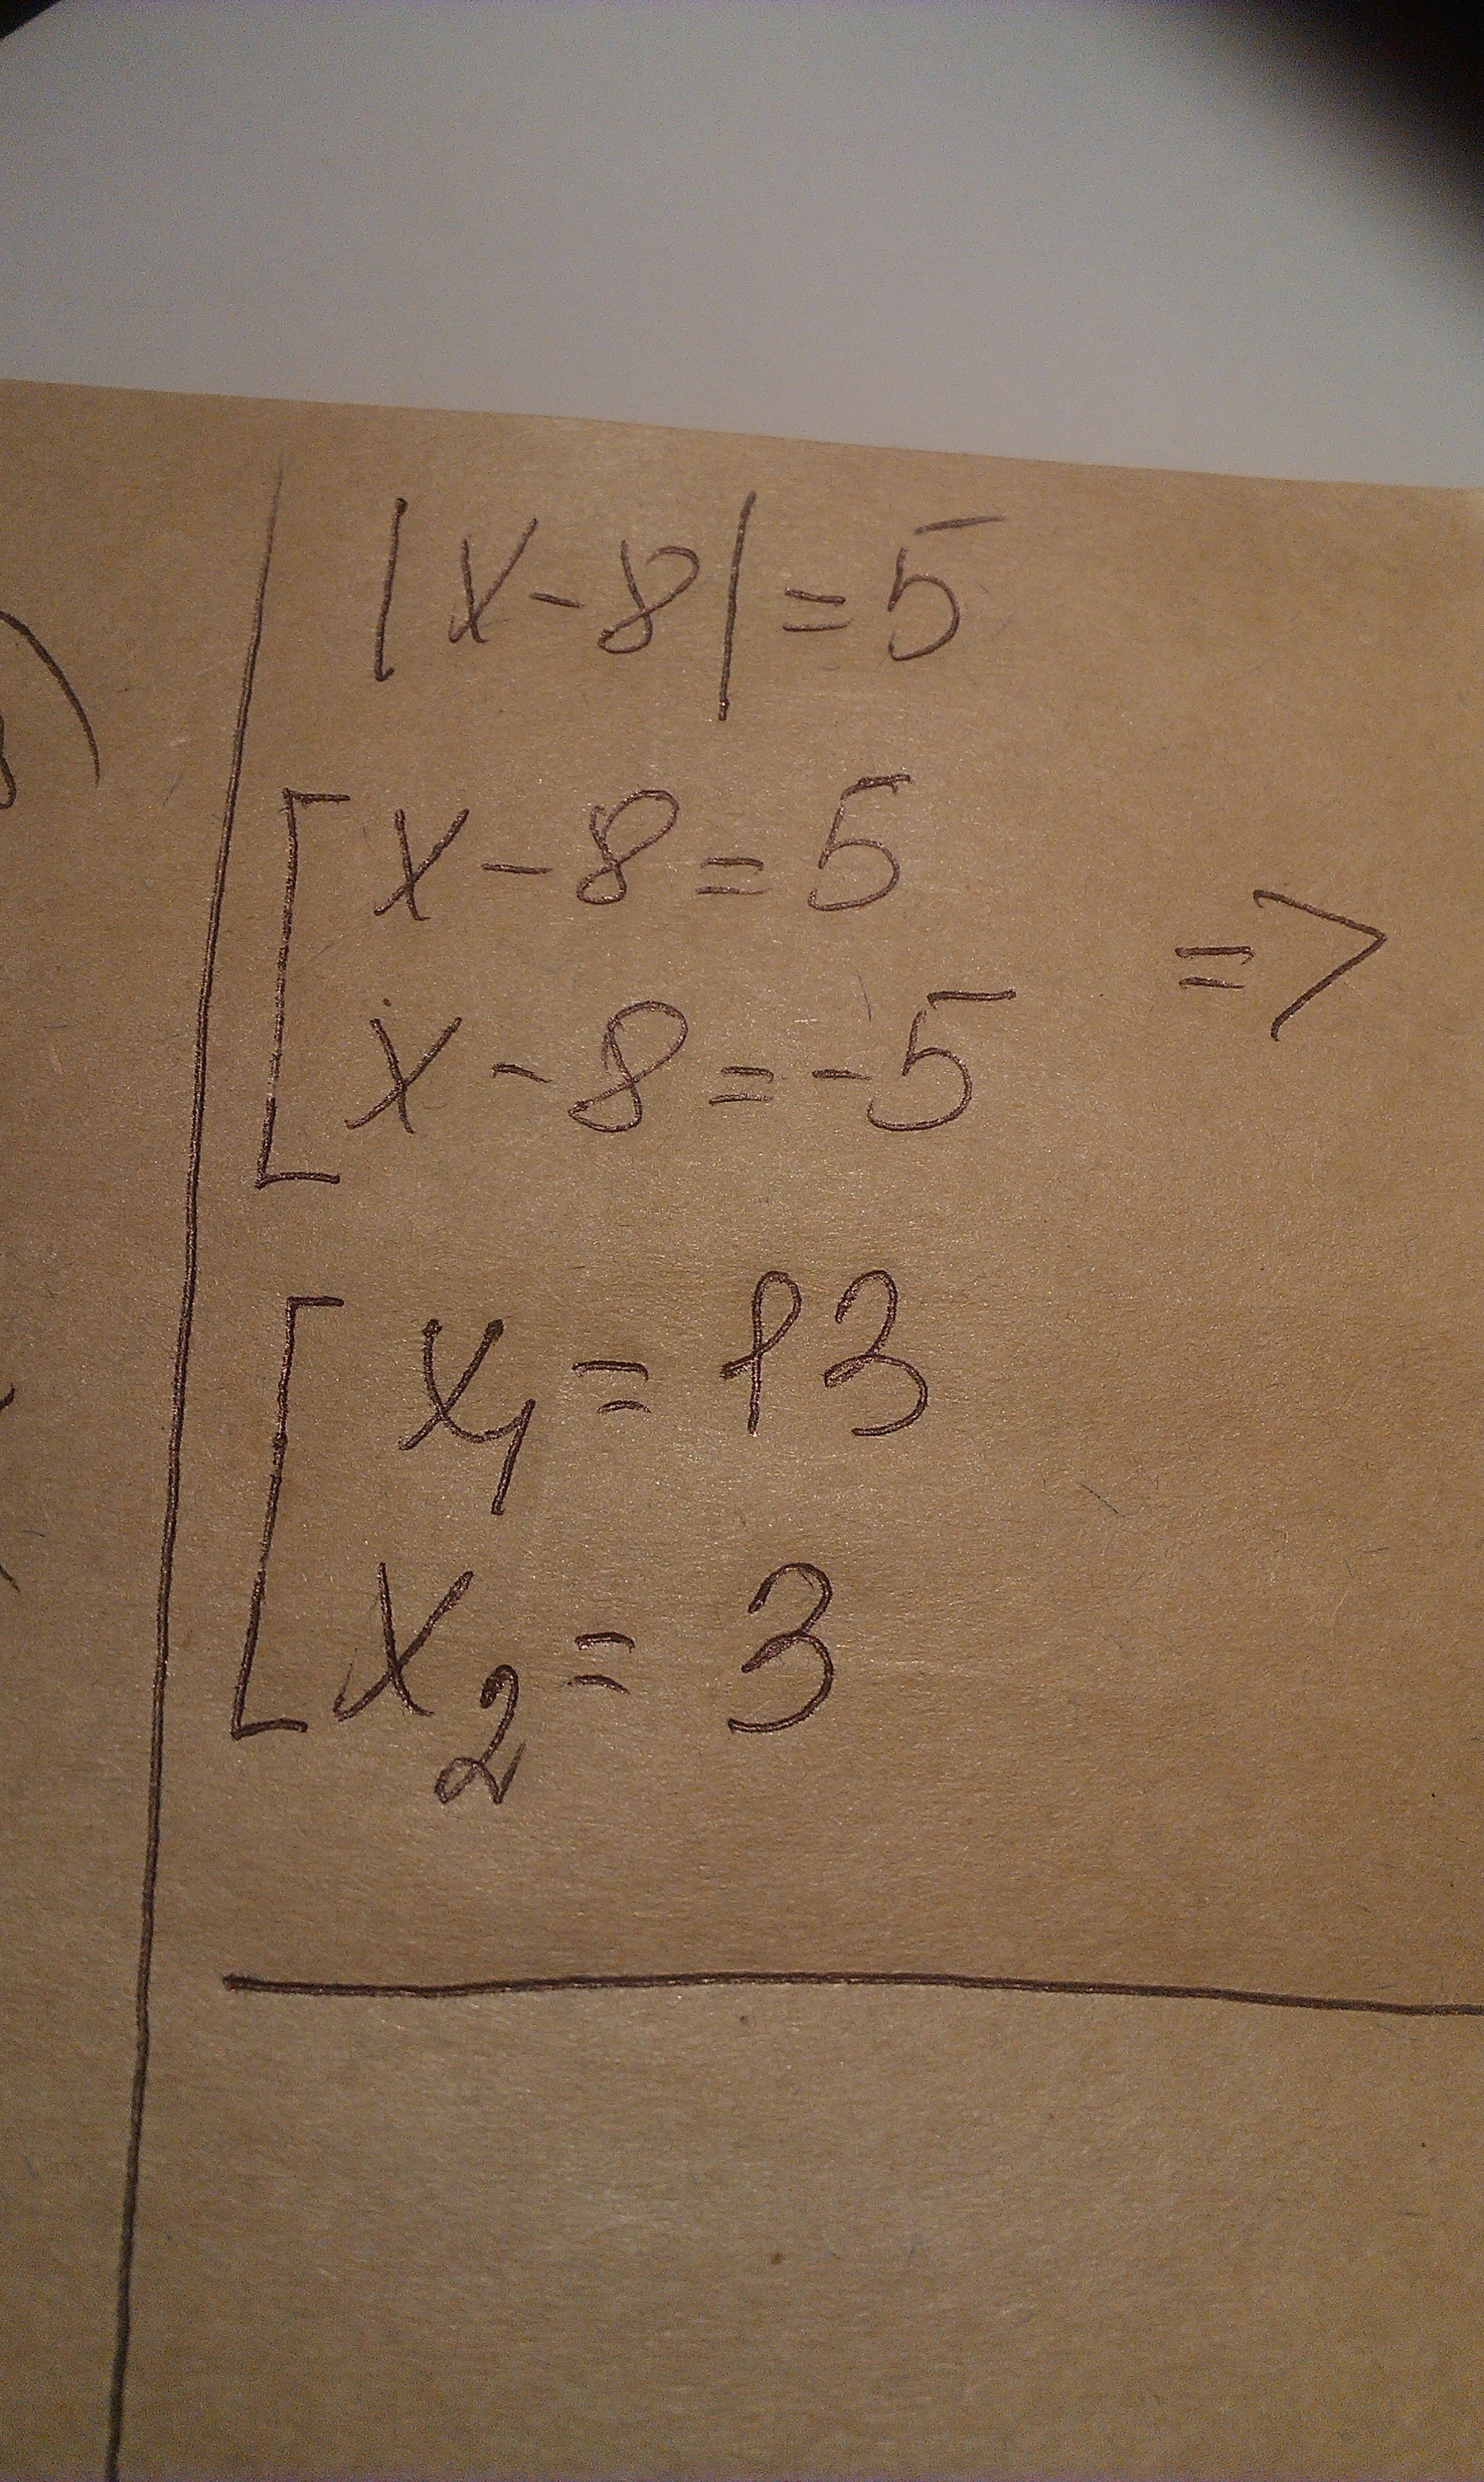 |x-8|=5
[x-8=5
x-8=-5 =>
[x₁=13
x₂=3